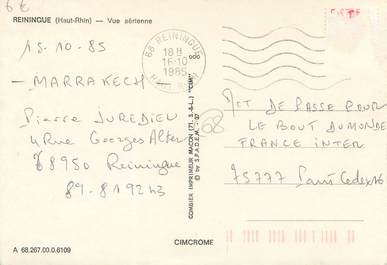 6€
REININGUE (Haut-Rhin) — Vue aérienne
15.10.85
— MARRAKECH —
Pierre JUREDIEU
4 Rue Georges Alter
68950 Reiningue
89-81 92 43
68 REININGUE
18 H
16-10
1985
HAUT-RHIN
COMBIER IMPRIMEUR MACON (71. S.-&-L.) "CIM"
© by S.P.A.D.E.M.
68
MOT DE PASSE POUR
LE BOUT DU MONDE
FRANCE INTER
75777 Paris Cedex 16
CIMCROME
A 68.267.00.0.6109